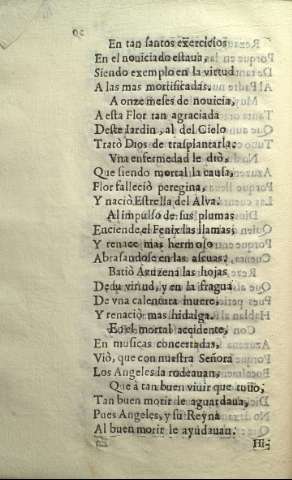 En tan santos exercicios
En el nouiciado estaua,
Siendo exemplo en la virtud
A las mas mortificadas.
A onze meses de nouicia,
A esta Flor tan agraciada
Deste Iardin, al del Cielo
Tratò Dios de trasplantarla:
Vna enfermedad le diò,
Que siendo mortal la causa,
Flor falleciò peregrina,
Y naciò Estrella del Alva.
Al impulso de sus plumas
Enciende el Fenix las llamas,
Y renace mas hermoso
Abrasandose en las ascuas:
Batiò Azuzena las hojas
De su virtud, y en la fragua
De vna calentura muere,
Y renaciò mas hidalga.
En el mortal accidente,
En musicas concertadas,
Viò, que con nuestra Señora
Los Angeles la rodeauan,
Que à tan buen viuir que tuuo,
Tan buen morir le aguardaua,
Pues Angeles, y su Reyna
Al buen morir le ayudauan.